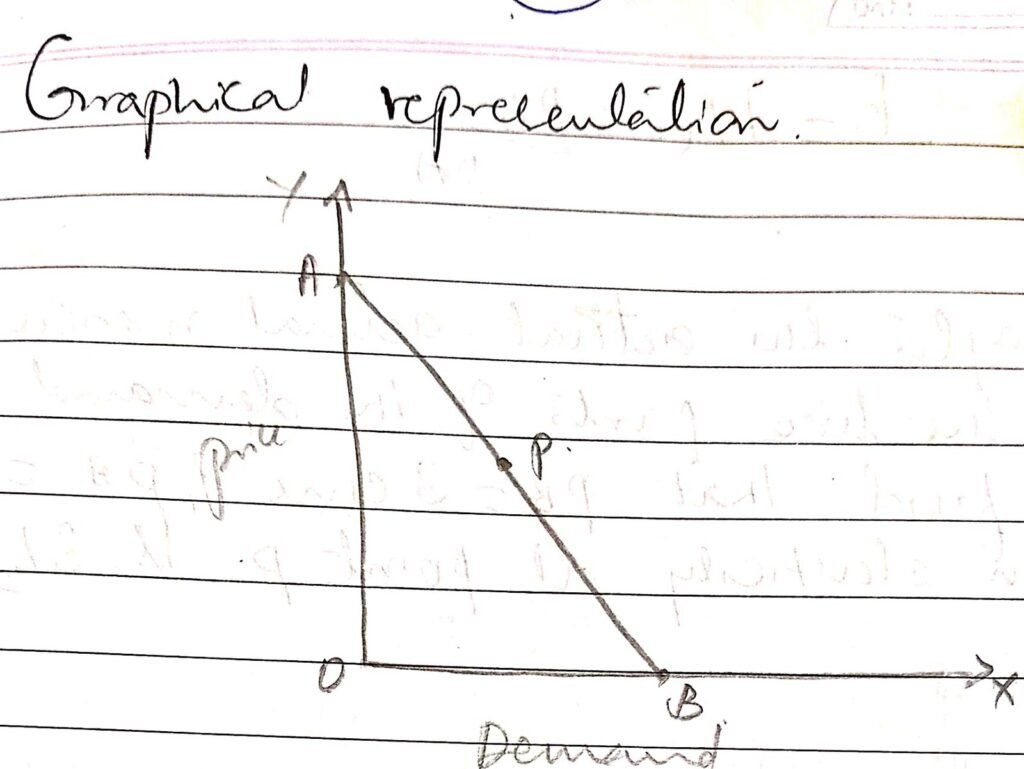 Graphical representation.
Y
A
price
P.
O
B
X
Demand